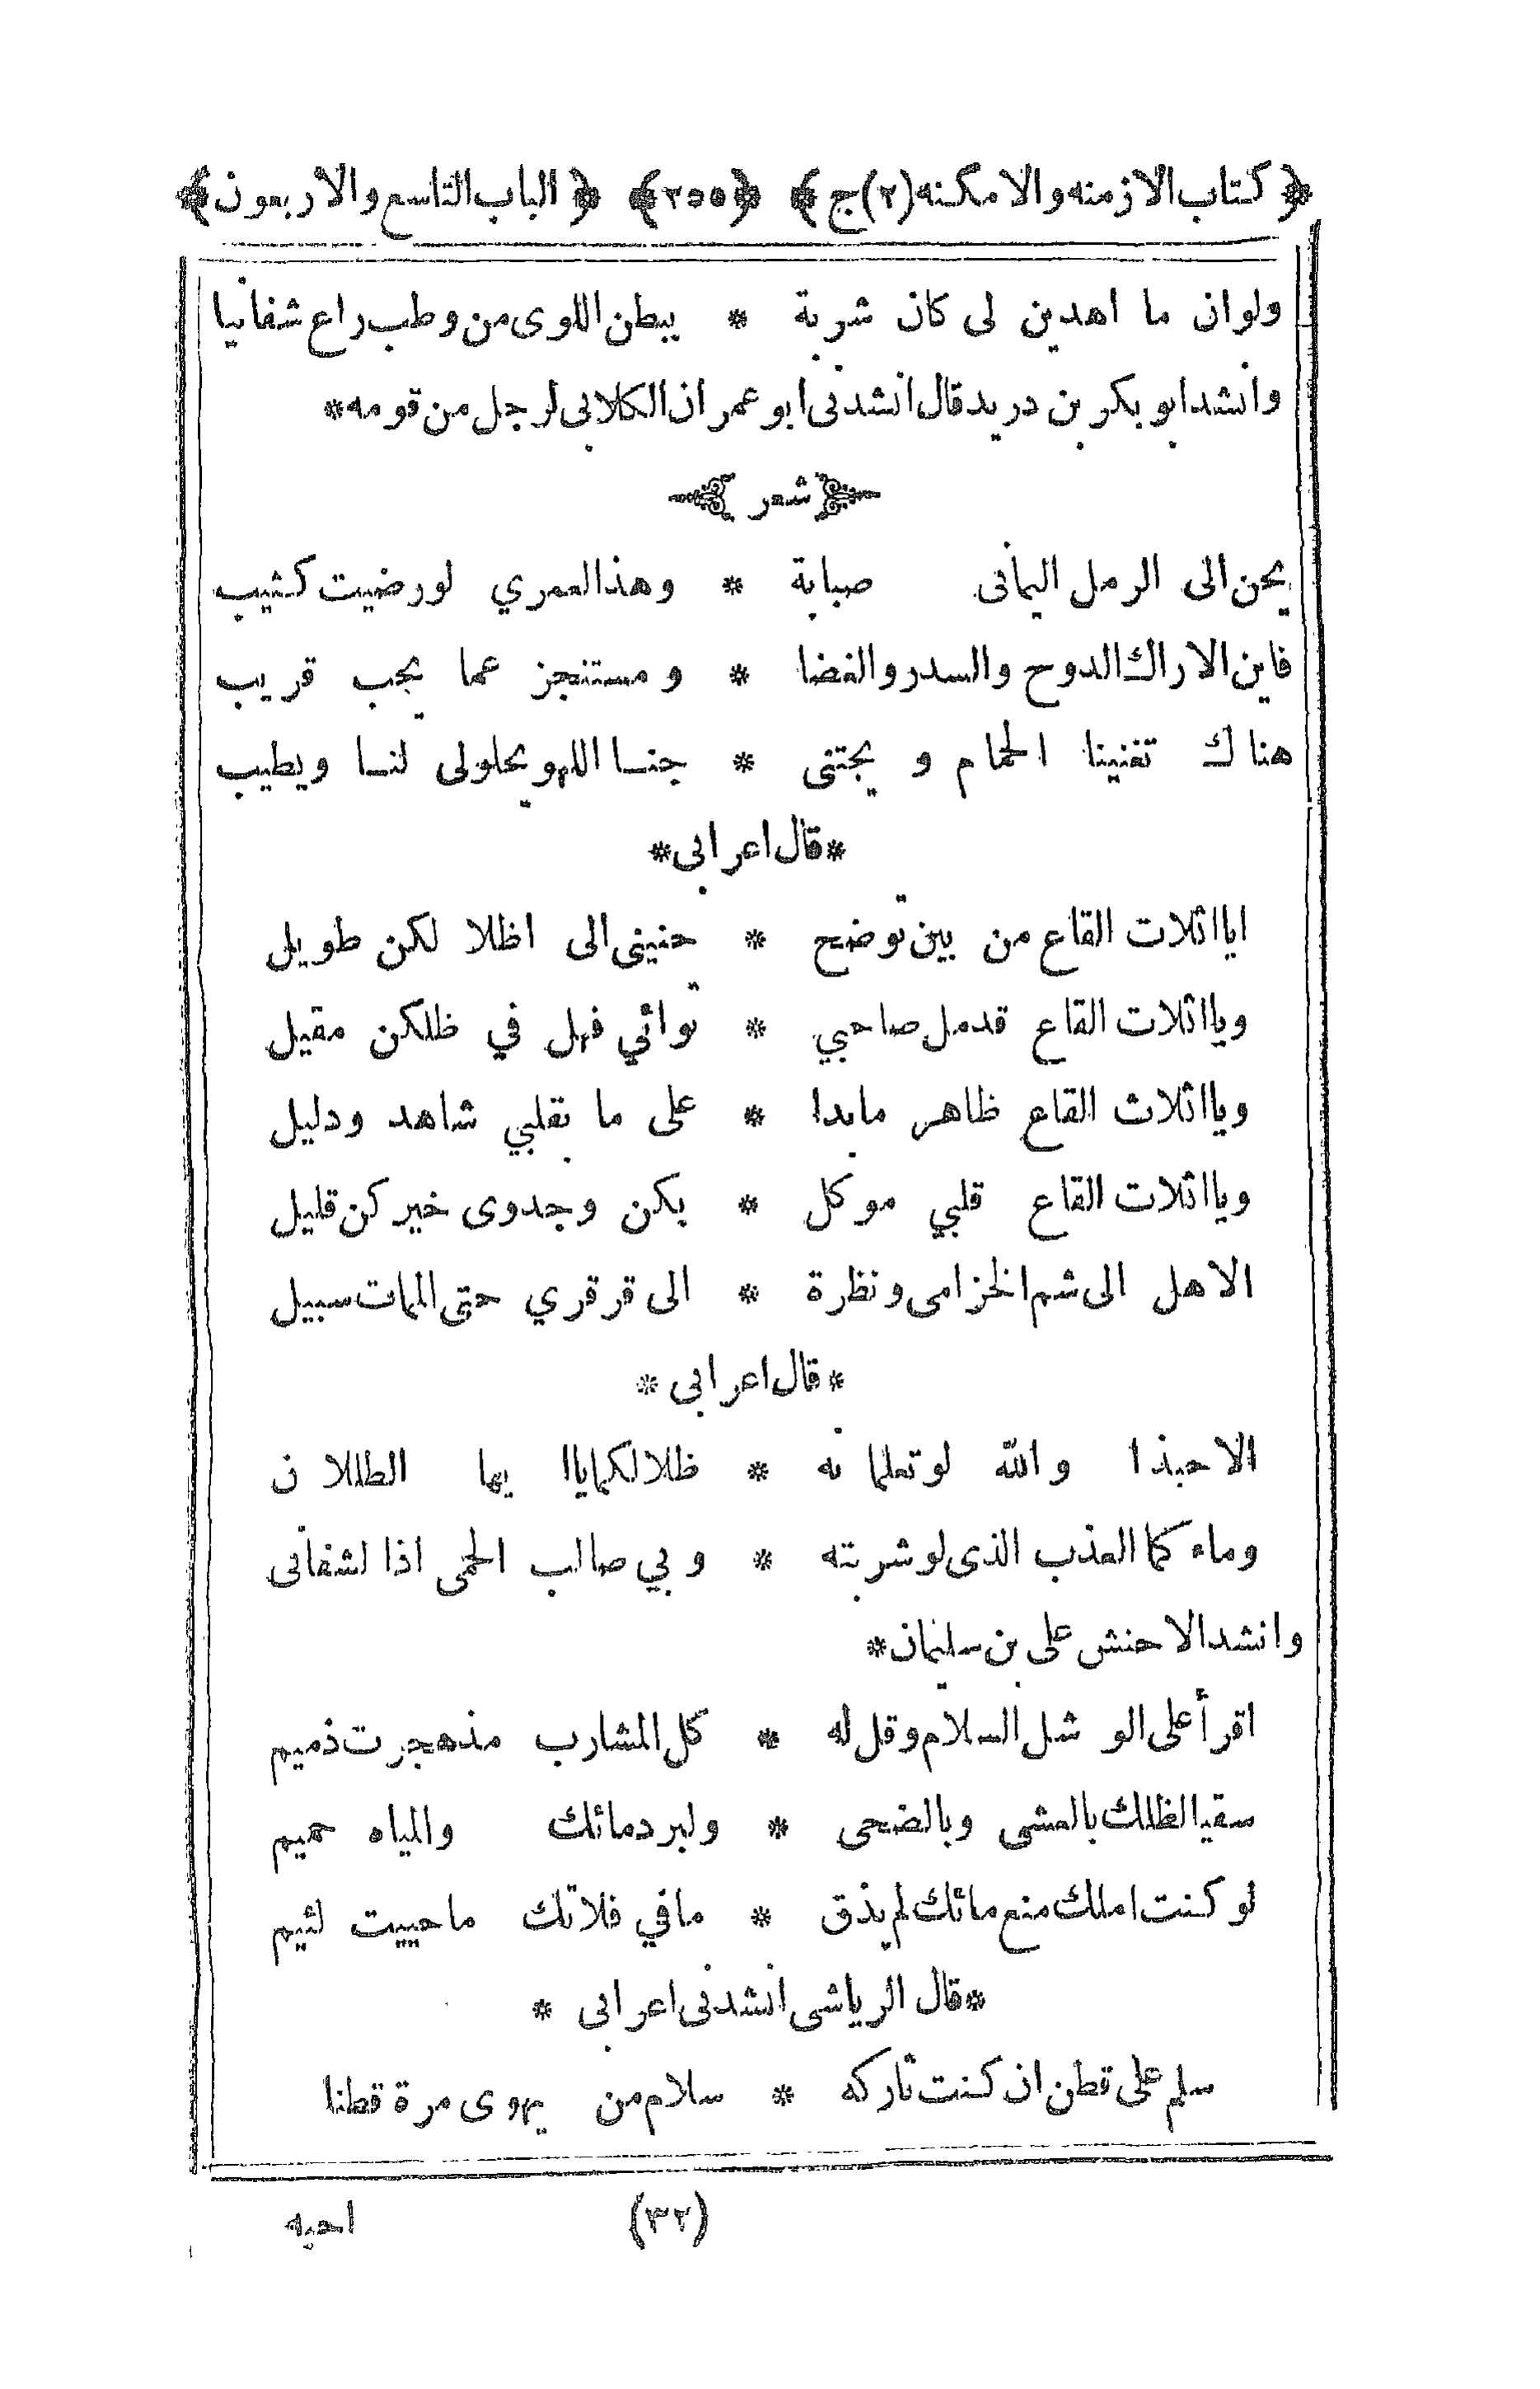 ﴿ كتاب الازمنه والامكنه (٢) ج ﴾ ﴿ ٢٥٥ ﴾ ﴿ الباب التاسع والاربعون ﴾
ولوان ما اهدين لى كان شربة * ببطن اللوى من وطب راع شفانيا
وانشد ابو بكر بن دريد قال انشدنى ابو عمران الكلابى لرجل من قومه *
شعر
يحن الى الرمل اليمانى صبابة * وهذا لعمري لو رضيت كثيب
فاين الاراك الدوح والسدر والغضا * ومستنجز عما يجب قريب
هناك تغنينا الحمام و يجتنى * جنا اللهو يحلولى لنا ويطيب
* قال اعرابى *
ايا اثلات القاع من بين توضح * حنينى الى اظلا لكن طويل
ويا اثلات القاع قدمل صاحبي * توائي فهل في ظلكن مقيل
ويا اثلاث القاع ظاهر مابدا * على ما بقلبي شاهد ودليل
ويا اثلات القاع قلبي موكل * بكن وجدوى خير كن قليل
الاهل الى شم الخزامى ونظرة * الى قرقري حتى الممات سبيل
* قال اعرابى *
الاحبذا والله لو تعلمانه * ظلالكما يا ايها الطللان
وماءكما العذب الذى لو شربته * وبي صالب الحمى اذا لشفانى
وانشد الاحنش على بن سليمان *
اقرأ على الوشل السلام وقل له * كل المشارب مذ هجرت ذميم
سقيا لظلك بالعشى وبالضحى * ولبرد مائك والمياه حميم
لو كنت املك منع مائك لم يذق * مافي فلاتك ما حييت لئيم
* قال الرياشى انشدنى اعرابى *
سلم على قطن ان كنت تاركه * سلام من يهوى مرة قطنا
(٣٢)
احبه